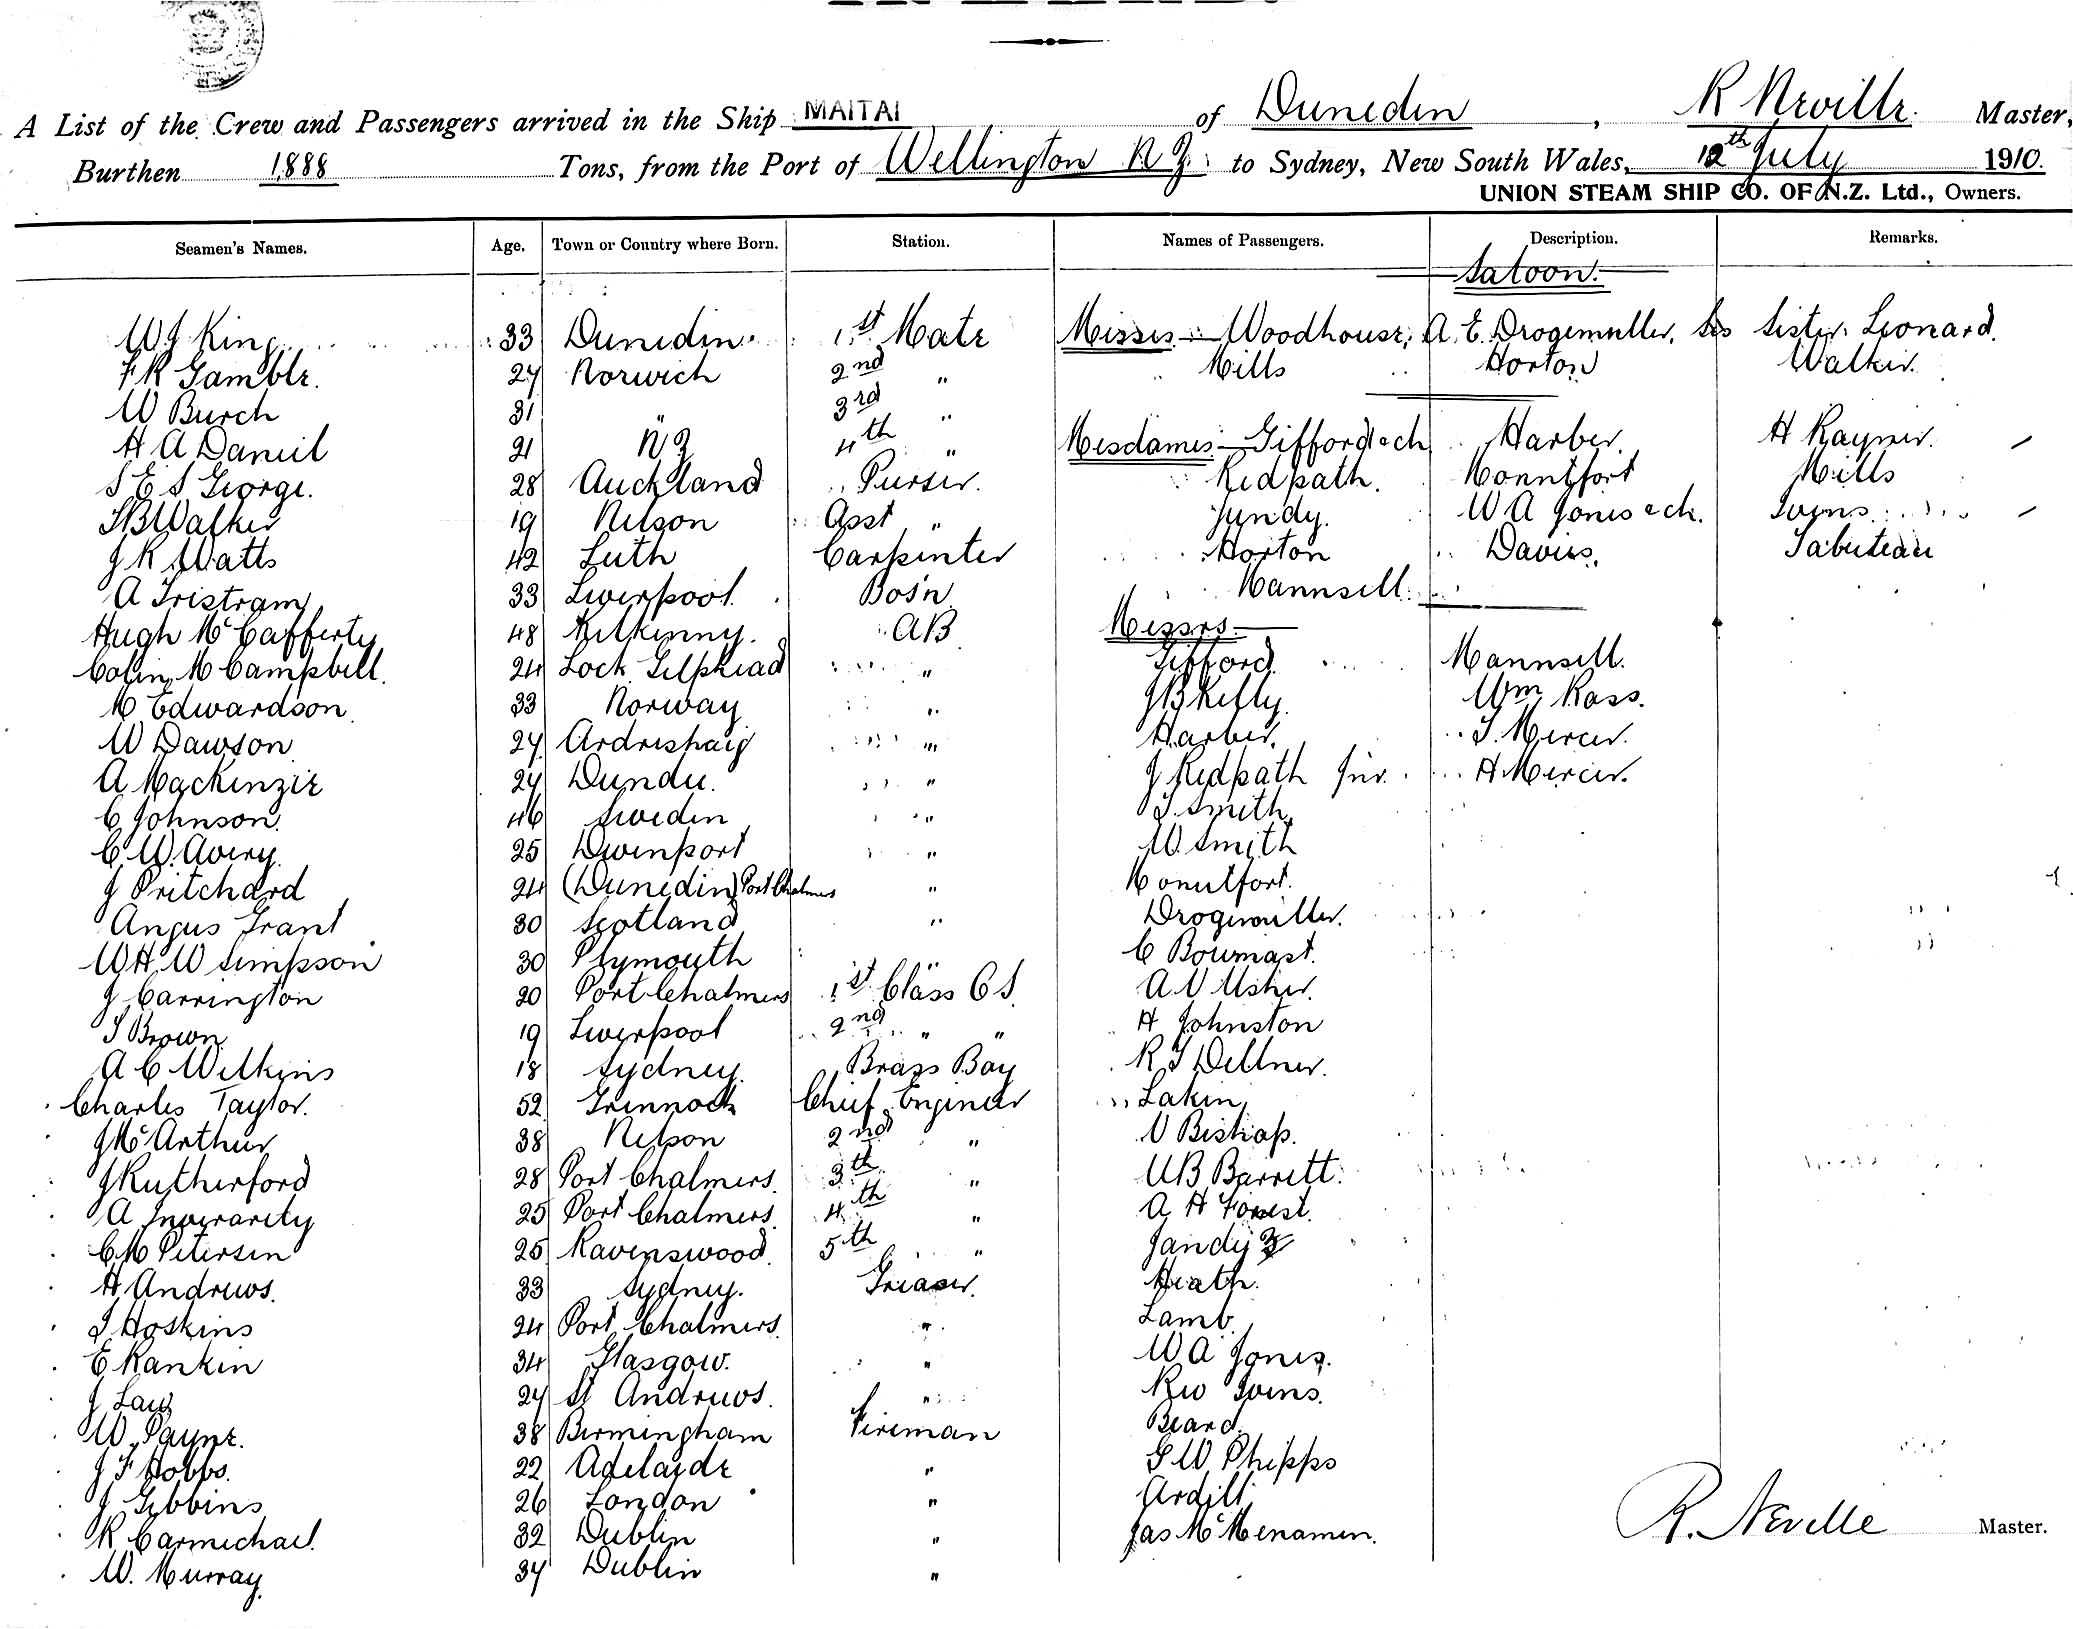 A List of the Crew and Passengers arrived in the Ship MAITAI of Dunedin, R Neville. Master,
Burthen 1,888 Tons, from the Port of Wellington N Z. to Sydney, New South Wales, 12th July 1910.
UNION STEAM SHIP CO. OF N.Z. Ltd., Owners.
Seamen's Names. Age. Town or Country where Born. Station. Names of Passengers. Description. Remarks.
Saloon.
W J King 33 Dunedin 1st Mate Misses Woodhouse; A. E. Drogemuller, Sister Leonard.
F R Gamble. 27 Norwich 2nd " Mills Horton Walker.
W Burch 31 " 3rd " 
H A Daniel 21 N Z 4th " Mesdames Gifford & ch Harber. H Rayner.
S E S George. 28 Auckland Purser. Redpath. Monntfort Mills
S B Walker 19 Nelson Asst " Jundy. W A Jones & ch. Ivens
J R Watts 42 Leith Carpenter Horton Davies. Sabiteau
A Tristram 33 Liverpool. Bos'n Mannsell.
Hugh McCafferty 48 Kilkenny. AB Messrs
Colin M Campbell. 24 Lock Gilphead " Gifford. Mannsell.
M Edwardson 33 Norway " J B Kelly. Wm Ross.
W Dawson 27 Ardrishaig " Harber. S. Mercer.
A Mackenzie 27 Dundee. " J Redpath Jnr. H Mercer.
C Johnson. 46 Sweden " S. Smith.
C. W. Avery. 25 Devenport " W Smith
J Pritchard 24 (Dunedin) Port Chalmers " Monntfort.
Angus Grant 30 Scotland " Drogemuller.
W H W Simpson 30 Plymouth " C Bowmast.
J Carrington 20 Port Chalmers 1st Class O S. A V Usher.
S Brown 19 Liverpool 2nd " " H Johnston
A C Wilkins 18 Sydney. Brass Boy R S Dellner.
Charles Taylor. 52 Greenock Chief Engineer Lakin.
J McArthur 38 Nelson 2nd " V Bishop.
J Rutherford 28 Port Chalmers. 3th " U B Barrett.
A Inverarity 25 Port Chalmers. 4th " A H Forest.
C M Petersen 25 Ravenswood 5th " Jandy
H Andrews. 33 Sydney. Greaser. Heath.
S Hoskins 24 Port Chalmers. " Lamb
E Rankin 34 Glasgow. " W A Jones.
J Law 27 St Andrews. " Rev Ivens.
W. Payne. 38 Birmingham Fireman Beard.
J F Hobbs. 22 Adelaide " G W Phipps
J Gibbins 26 London " Ardill
R Carmichael. 32 Dublin " Jas McMenamen.
W. Murray. 34 Dublin "
R. Neville Master.